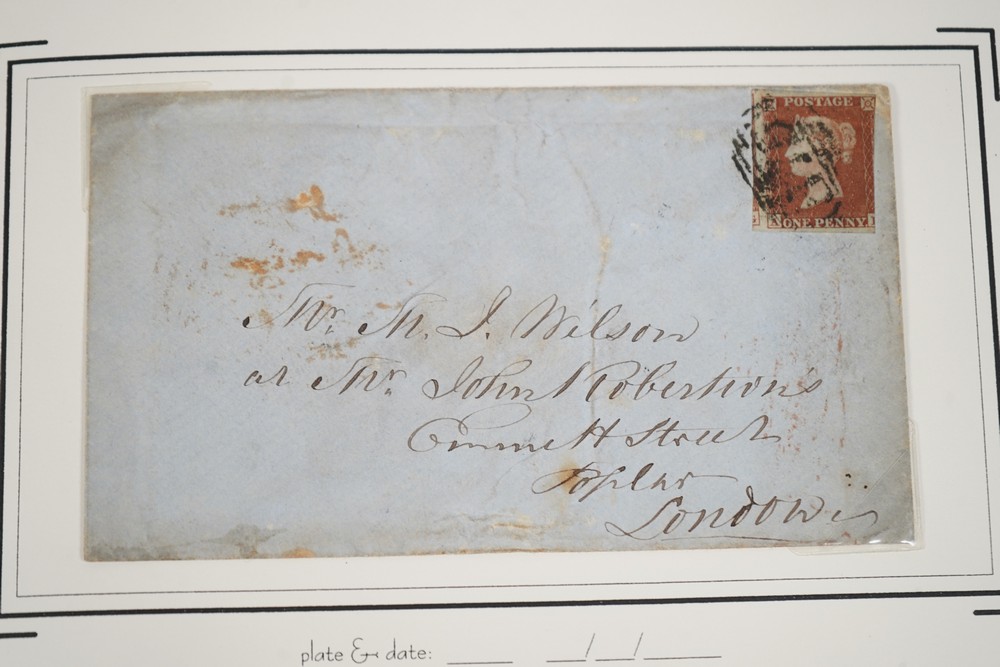 POSTAGE
ONE PENNY
Mr. M. J. Wilson
at Mr. John Robertsons
Emmett Street
Poplar
London
plate & date: ____ __/__/____